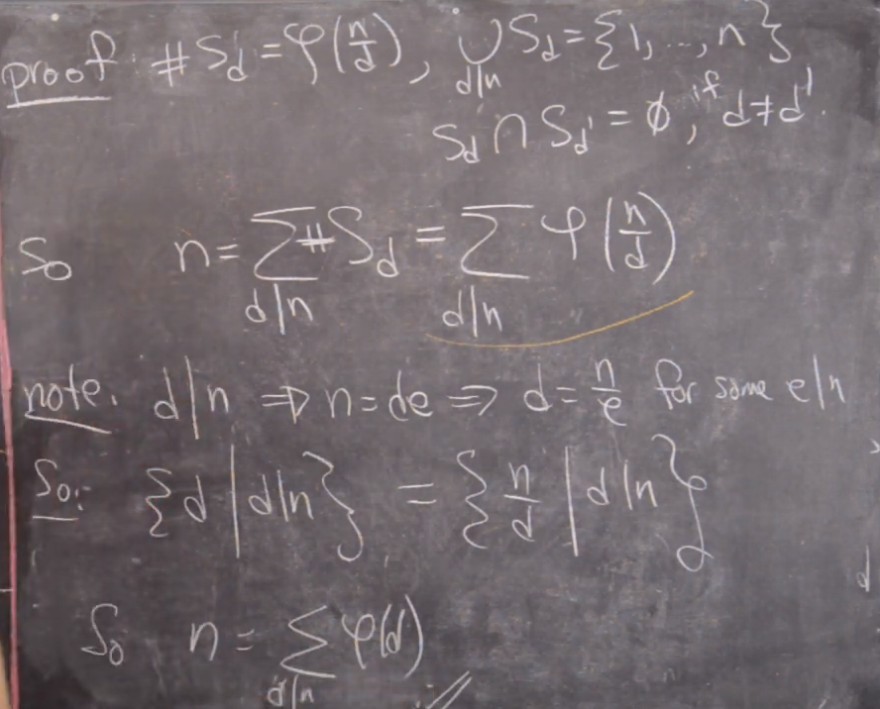 proof: #S_d = φ(n/d), ⋃_{d|n} S_d = {1, ..., n}
S_d ∩ S_d' = ∅, if d ≠ d'.
So n = ∑_{d|n} #S_d = ∑_{d|n} φ(n/d)
note. d|n ⇒ n = de ⇒ d = n/e for some e|n
So: {d | d|n} = {n/d | d|n}
So n = ∑_{d|n} φ(d)